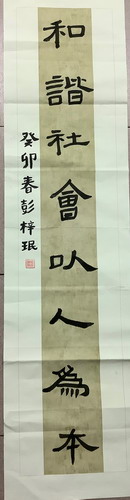 和諧社會以人為本
癸卯春彭梓珉